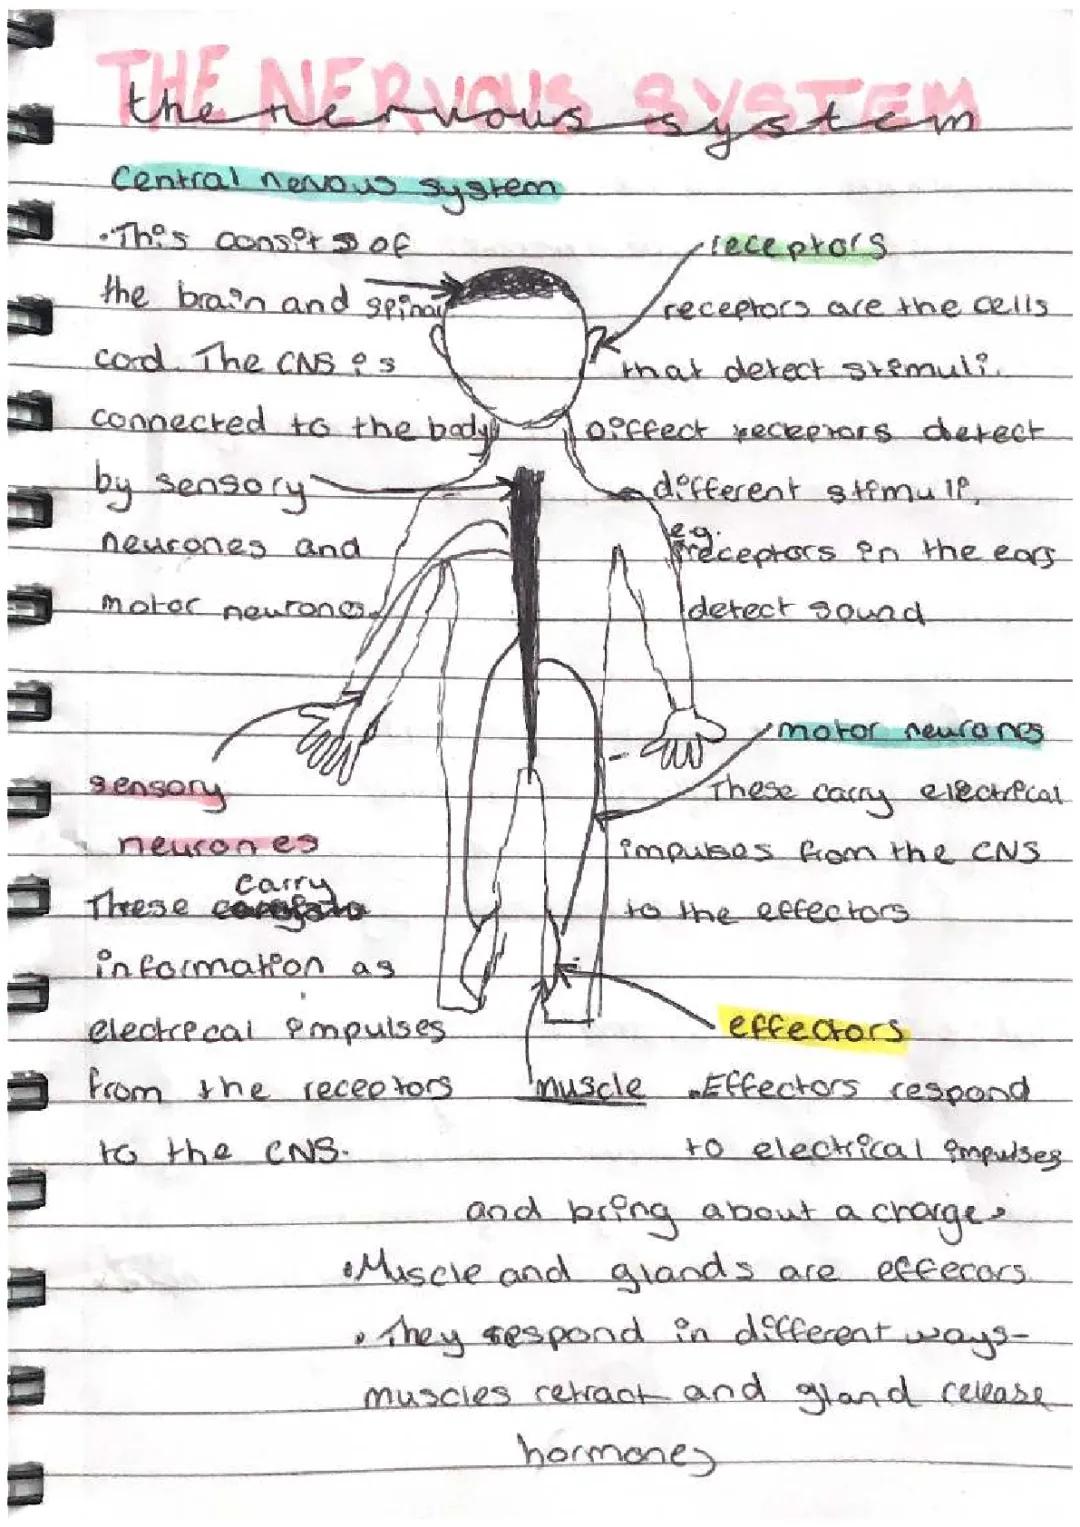 THE NERVOUS SYSTEM
the nervous system
Central nervous system
• This consits of
the brain and spinal
cord. The CNS is
connected to the body
by sensory
neurones and
motor neurones.
receptors
receptors are the cells
that detect stimuli.
Diffect receptors detect
different stimuli,
e.g.
receptors in the ears
detect sound
motor neurones
These carry electrical
impulses from the CNS
to the effectors
sensory
neurones
carry
These
information as
electrical impulses
from the receptors
to the CNS.
effectors
muscle
•Effectors respond
to electrical impulses
and bring about a charge.
•Muscle and glands are effecors
• They respond in different ways-
muscles retract and gland release
hormones